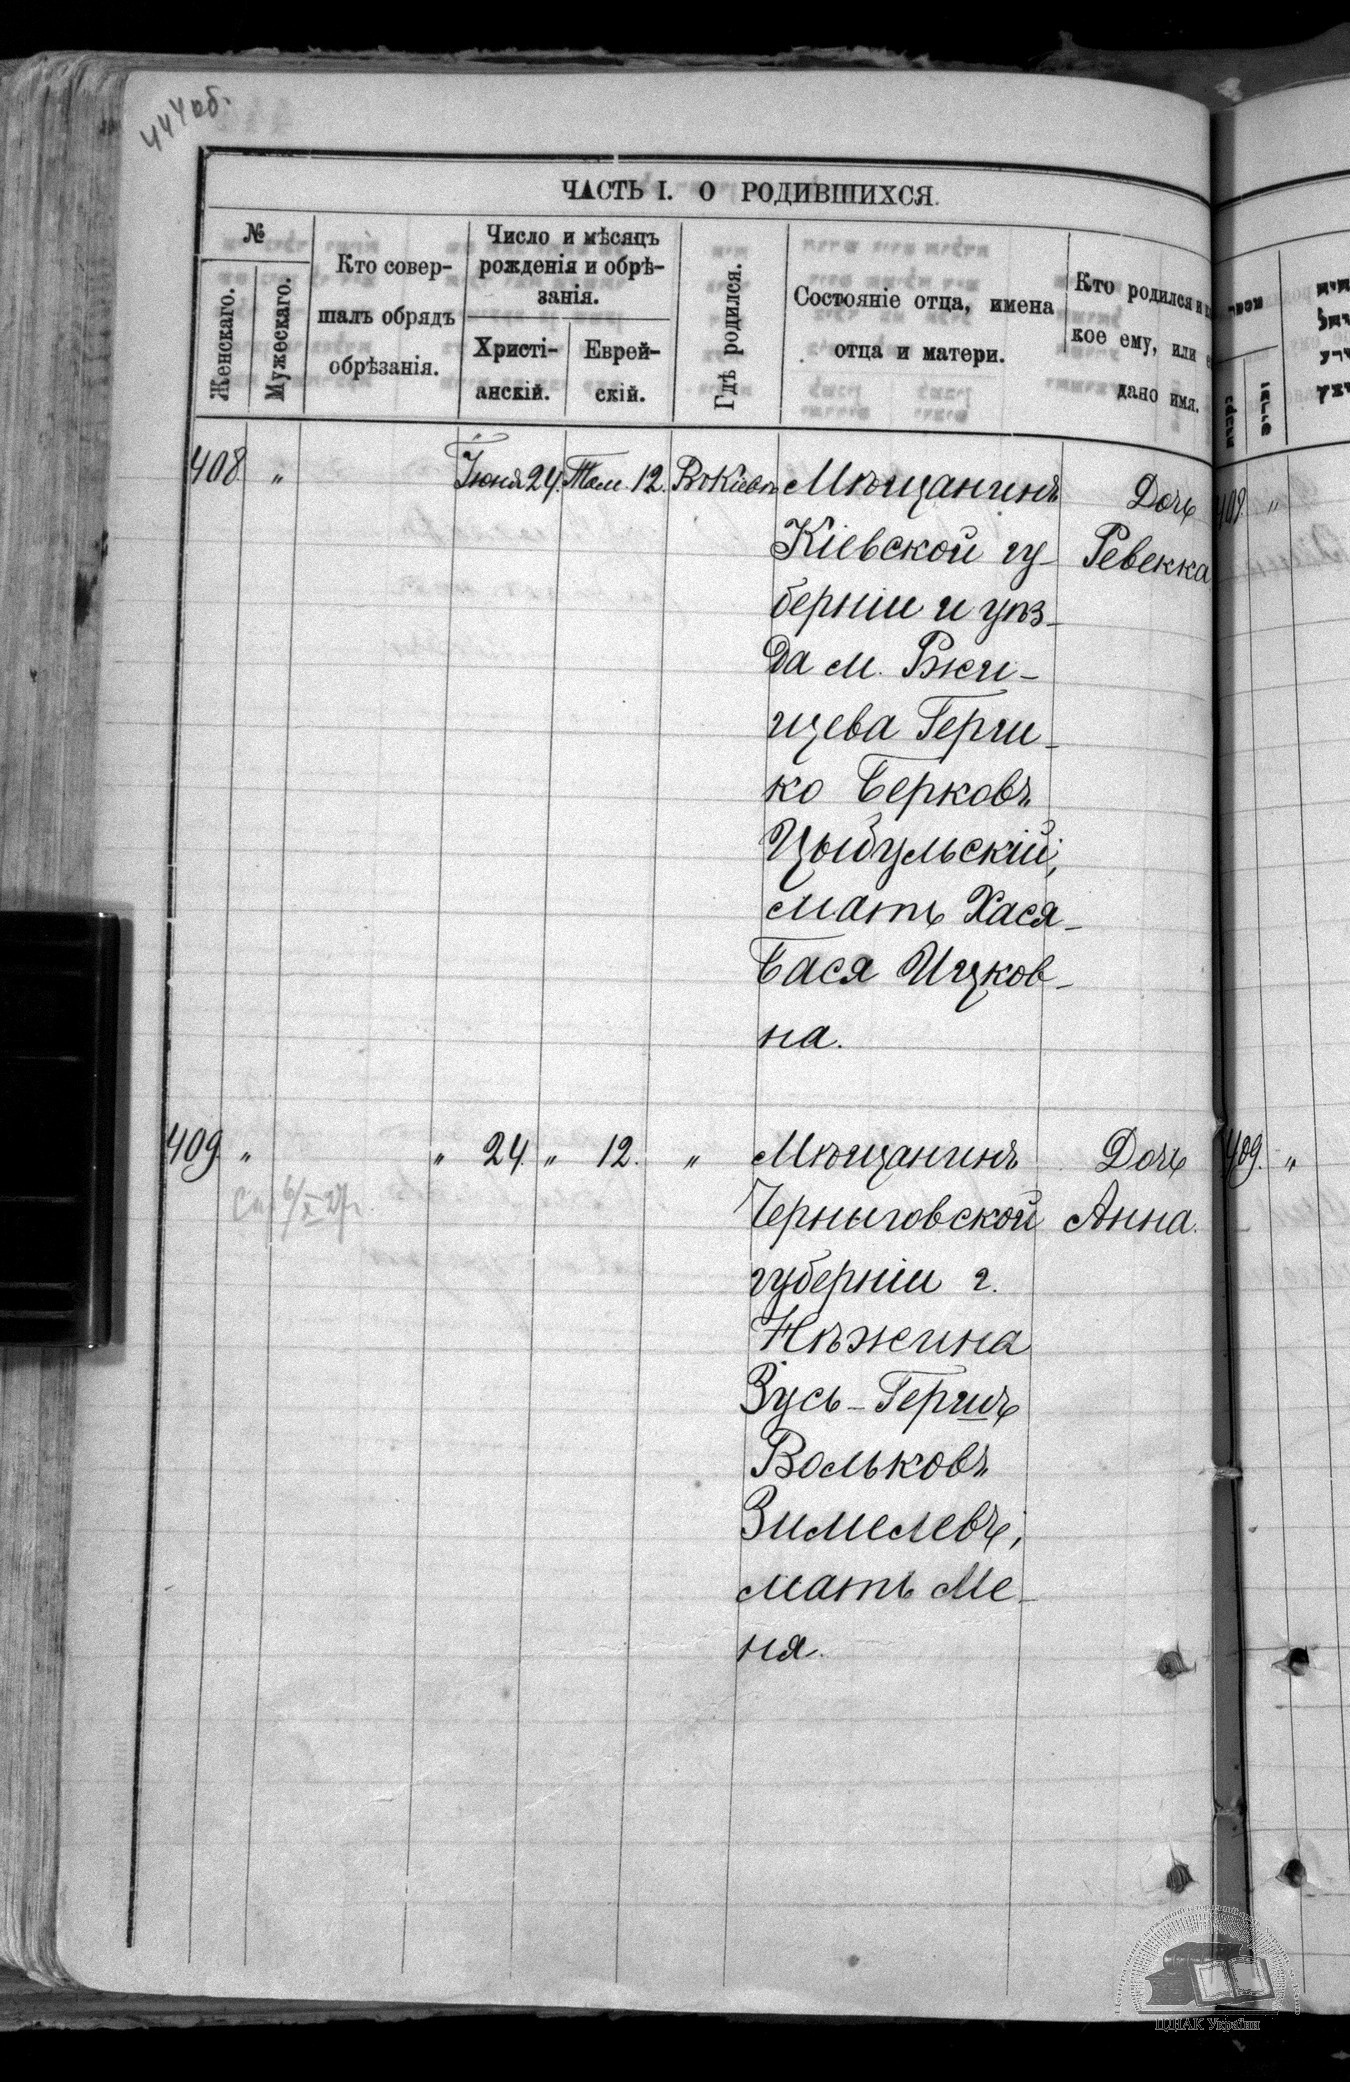 444 об.
ЧАСТЬ I. О РОДИВШИХСЯ.
№
Женскаго.
Мужескаго.
Кто совер-
шалъ обрядъ
обрѣзанія.
Число и мѣсяцъ
рожденія и обрѣ-
занія.
Христі-
анскій.
Еврей-
скій.
Гдѣ родился.
Состояніе отца, имена
отца и матери.
Кто родился и
кое ему, или
дано имя.
408. „ Іюня 24. Там. 12. Въ Кіевѣ Мѣщанинъ Дочь
Кіевской гу- Ревекка
берніи и уѣз-
да м. Ржи-
щева Герш-
ко Берковъ
Цыбульскій;
мать Хася-
Бася Ицков-
на.
409. „ „ 24. „ 12. „ Мѣщанинъ Дочь
Черниговской Анна.
губерніи г.
Нѣжина
Зусь-Гершъ
Вольковъ
Зимелевъ;
мать Ме-
ня.
409. „
409. „
ЦДІАК України